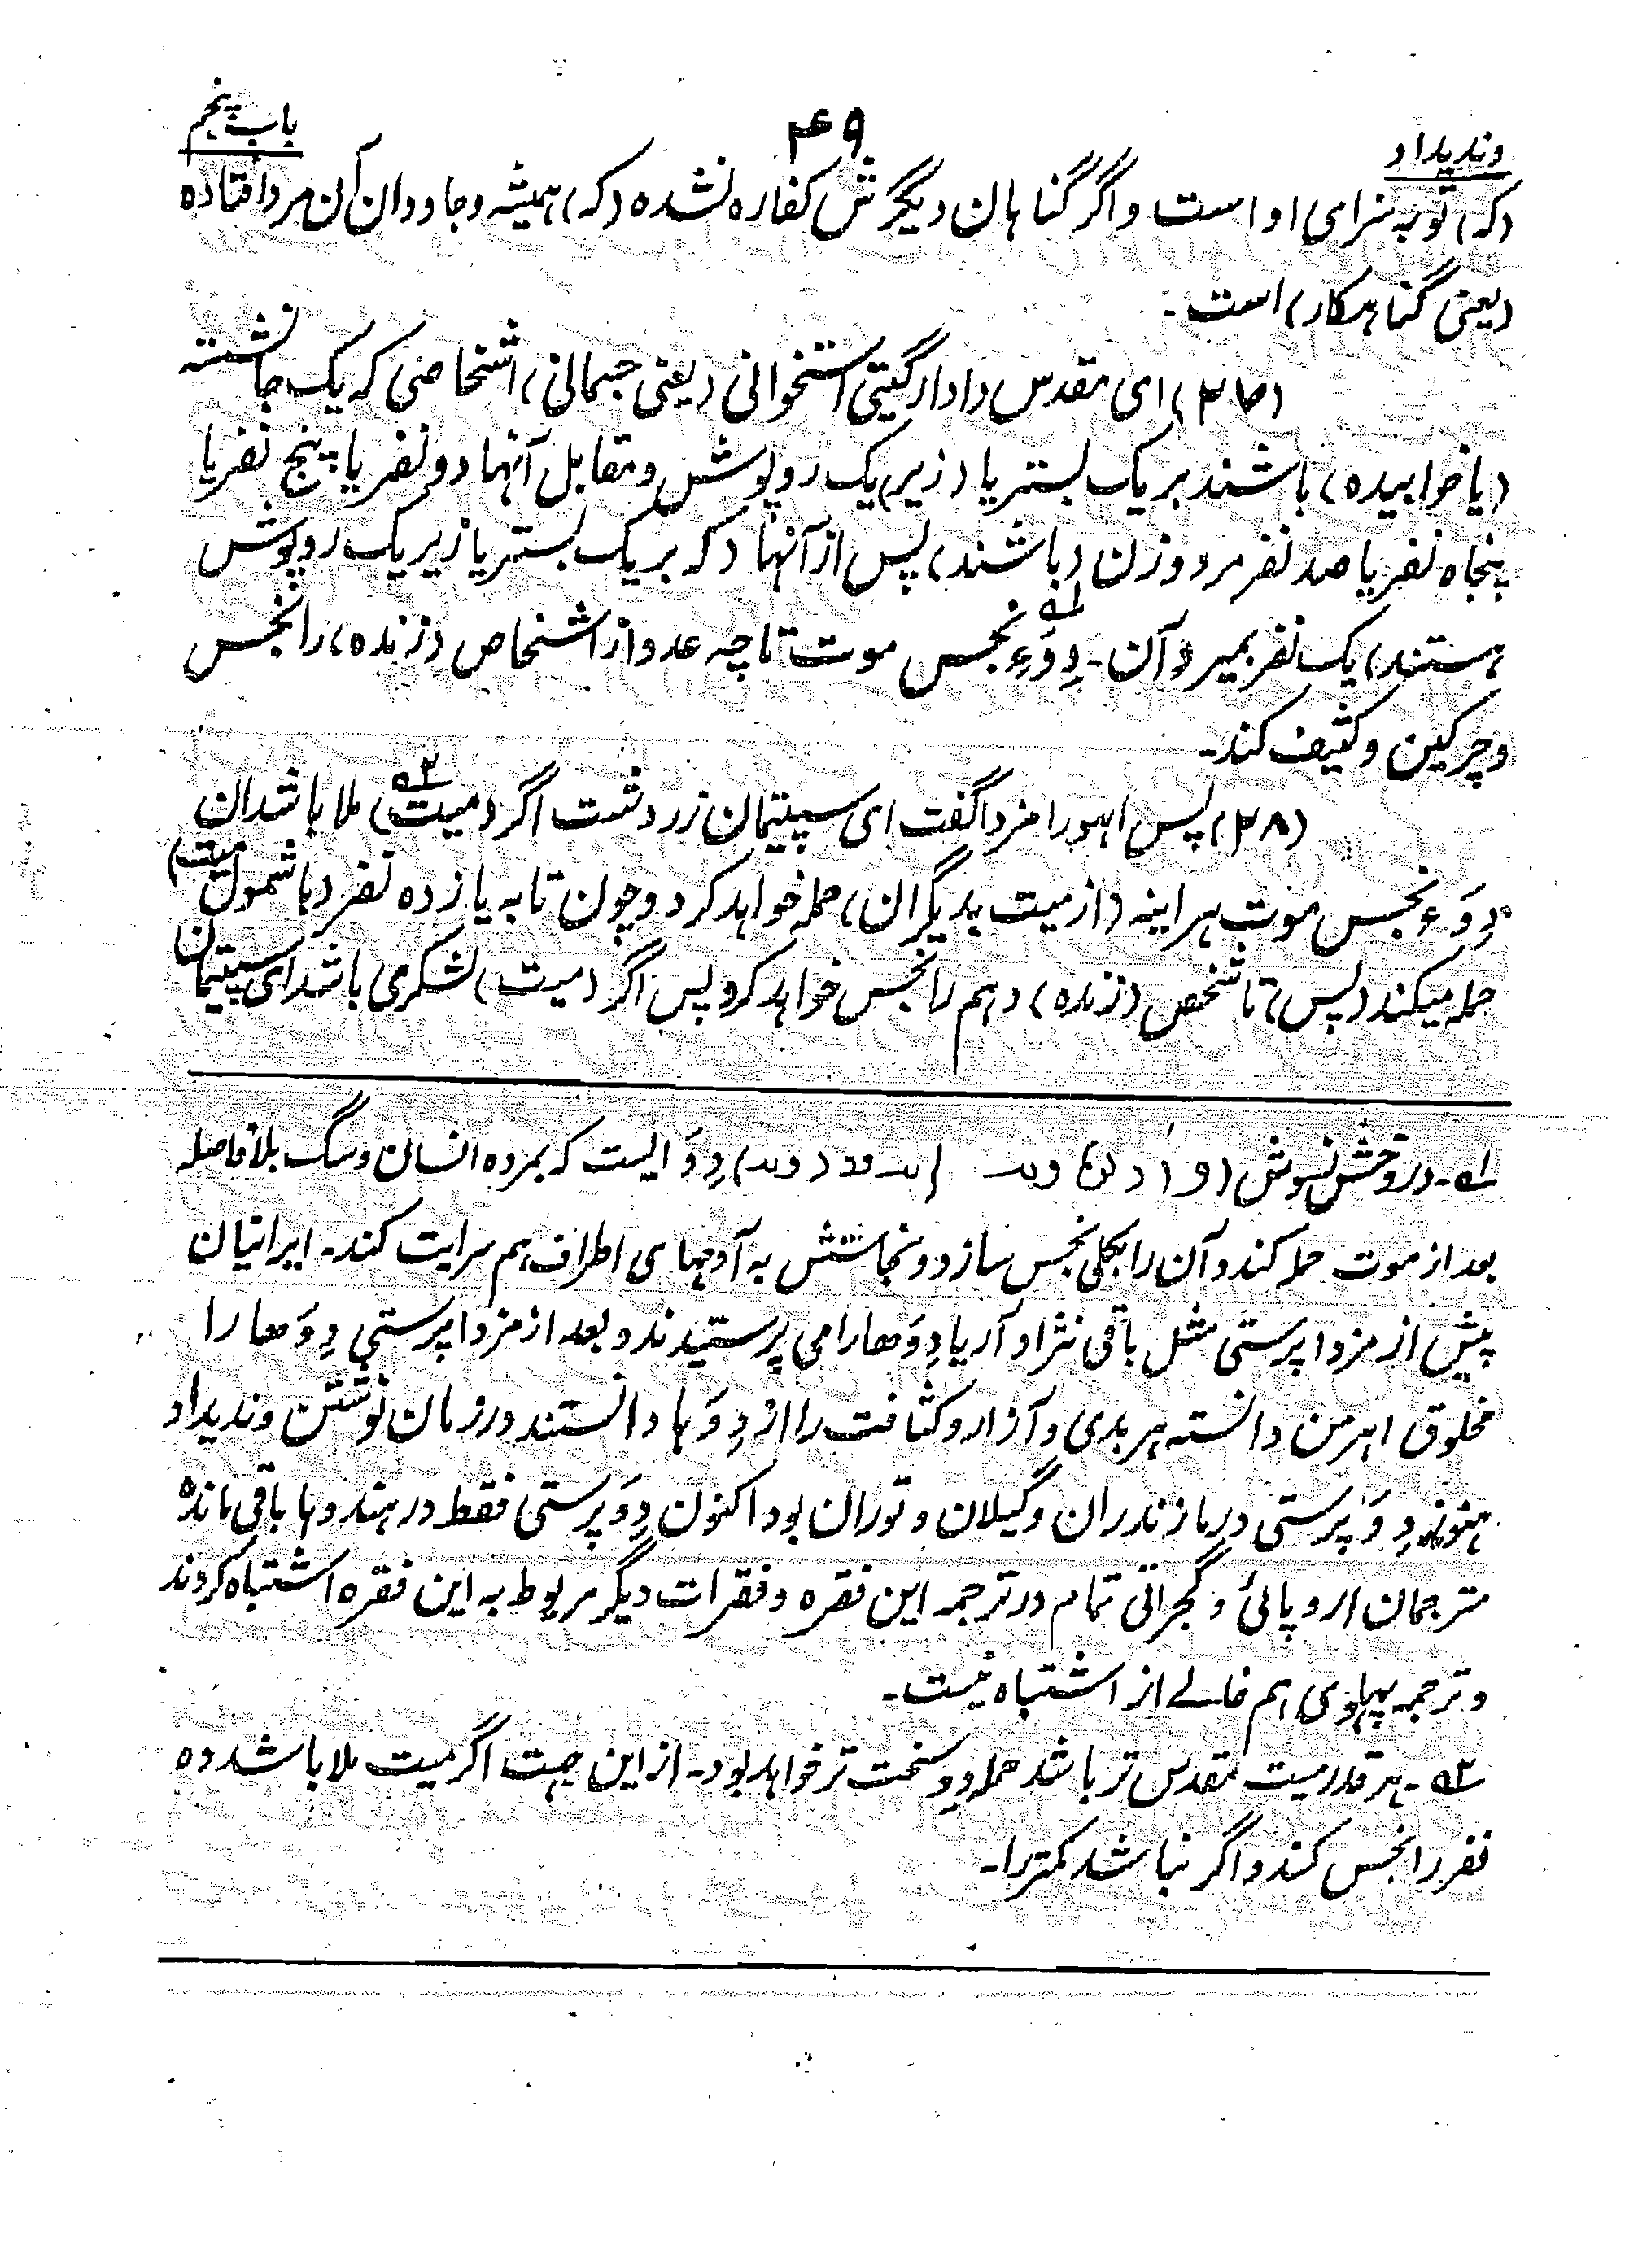 وندیداد
۴۹
باب پنجم
(که) توبه سزای او است و اگر گناهان دیگرش کفاره نشده (که) همیشه و جاودان آن مرد افتاده
(یعنی گناهکار) است۔
(۲۷) ای مقدس دادار گیتی استخوانی (یعنی جسمانی) اشخاصی که یک جا نشسته
(یا خوابیده) باشند بر یک بستر یا (زیر) یک روپوش و مقابل آنها دو نفر یا پنج نفر یا
پنجاه نفر یا صد نفر مرد و زن (باشند) پس از آنها (که بر یک بستر یا زیر یک روپوش
هستند) یک نفر بمیرد آن۔ دِوَءِ نجس موت تا چه عدد از اشخاص (زنده) را نجس
و چرکین و کثیف کند۔
(۲۸) پس اهورا مزدا گفت ای سپیتمان زردشت اگر (میت) ملا باشد ان
دِوَءِ نجس موت هر اینه (از میت بدیگران) حمله خواهد کرد و چون تا به یازده نفر (با شمول میت)
حمله میکند (پس) تا شخص (زنده) دهم را نجس خواهد کرد پس اگر (میت) لشکری باشد ای سپیتمان
۱ـه ۔ دروخش نسوش دِوَ ایست که بمرده انسان و سگ بلا فاصله
بعد از موت حمله کند و آن را بکلی نجس سازد و نجاستش به آدمهای اطراف هم سرایت کند۔ ایرانیان
پیش از مزدا پرستی مثل باقی نژاد آریا دِوَها را می پرستیدند و بعد از مزدا پرستی دِوَها را
مخلوق اهرمن دانسته هر بدی و آزار و کثافت را از دِوَ ها دانستند در زمان نوشتن وندیداد
هنوز دِوَ پرستی در مازندران و گیلان و توران بود اکنون دِوَ پرستی فقط در هندوها باقی مانده
مترجمان اروپائی و گجراتی تمام در ترجمه این فقره و فقرات دیگر مربوط به این فقره اشتباه کردند
و ترجمه پهلوی هم خالے از اشتباه نیست۔
۲ـه ۔ هر قدر میت مقدس تر باشد حمله دِو سخت تر خواهد بود۔ از این جهت اگر میت ملا باشد ده
نفر را نجس کند و اگر نباشد کمتر را۔